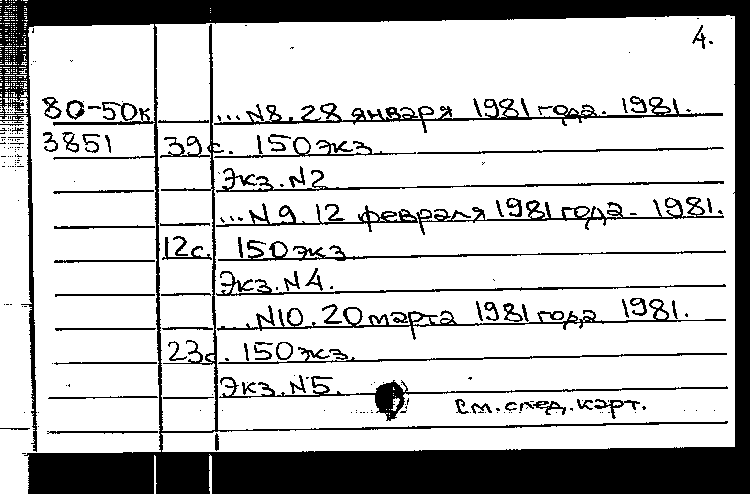 4.
80-50к ...N8. 28 января 1981 года. 1981.
3851 39с. 150 экз.
Экз. N2
...N9. 12 февраля 1981 года - 1981.
12с. 150 экз
Экз. N4.
...N10. 20 марта 1981 года 1981.
23с. 150 экз.
Экз. N5.
См. след. карт.